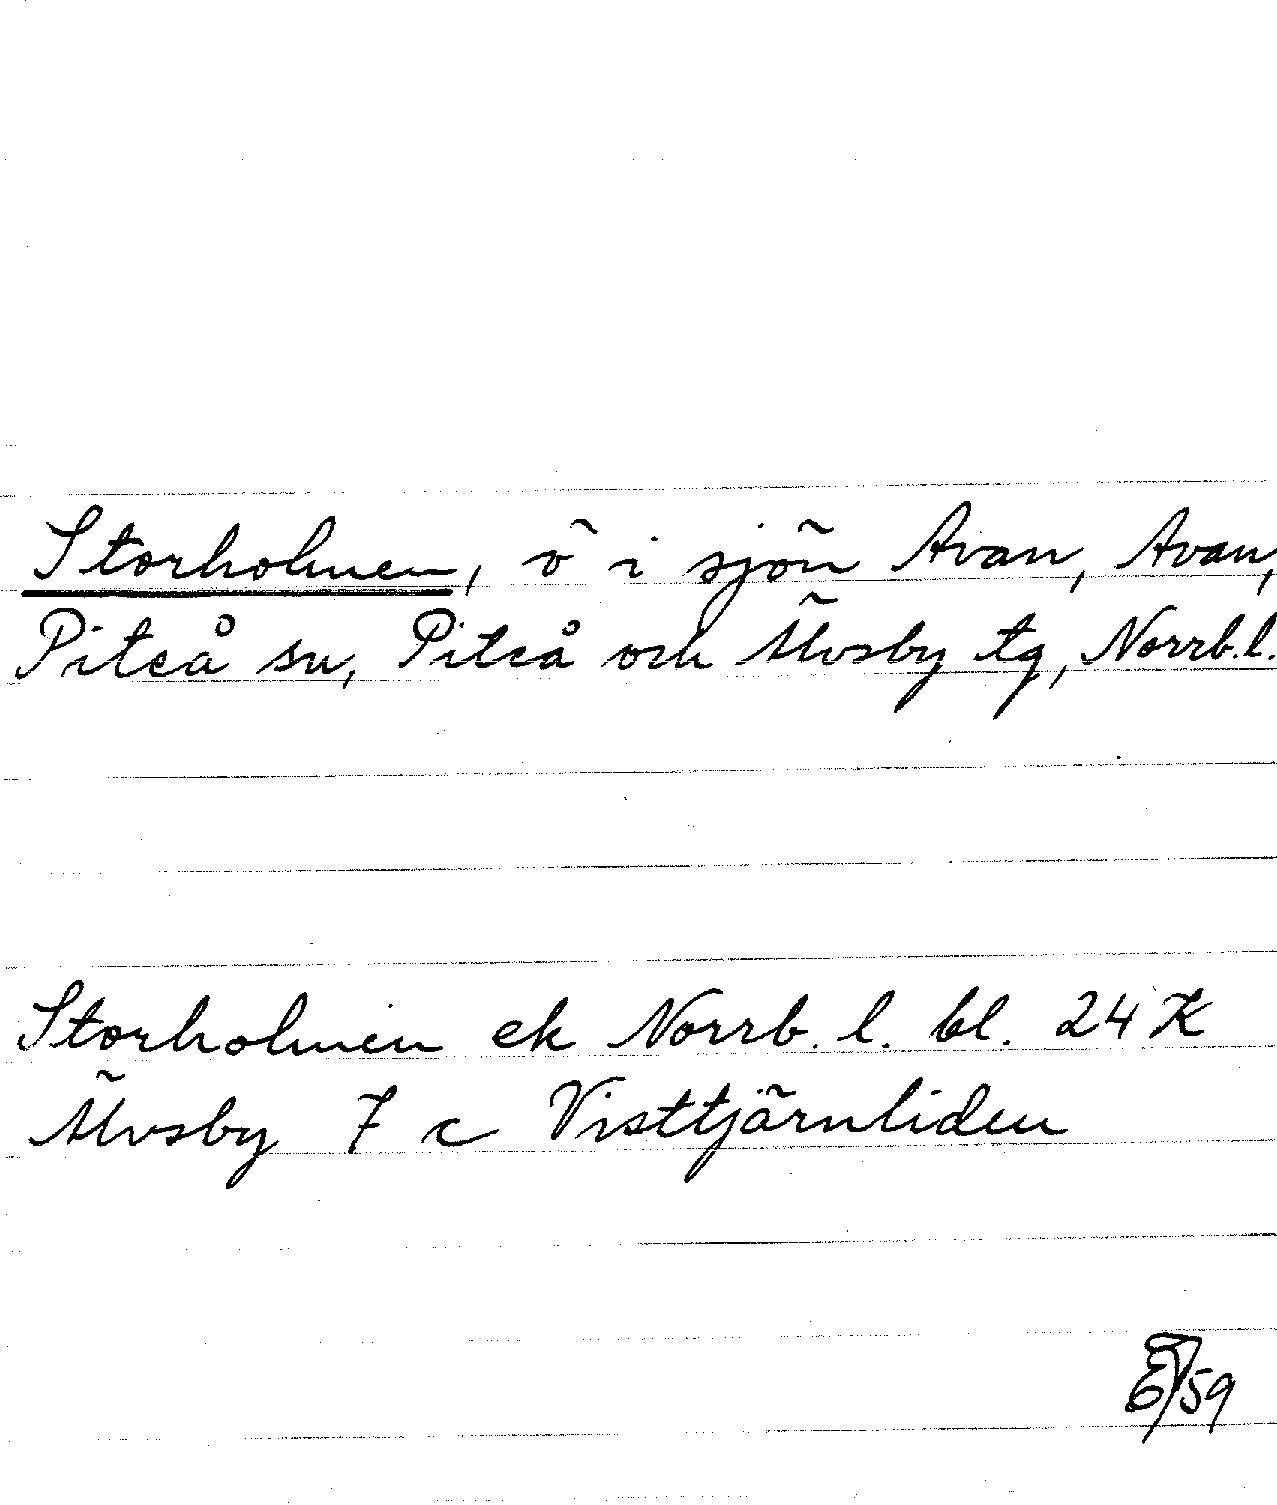 Storholmen, ö i sjön Avan, Avan,
Piteå sn, Piteå och Älvsby tg, Norrb. l.
Storholmen ek Norrb. l. bl. 24 K
Älvsby 7 c Visttjärnliden
/59